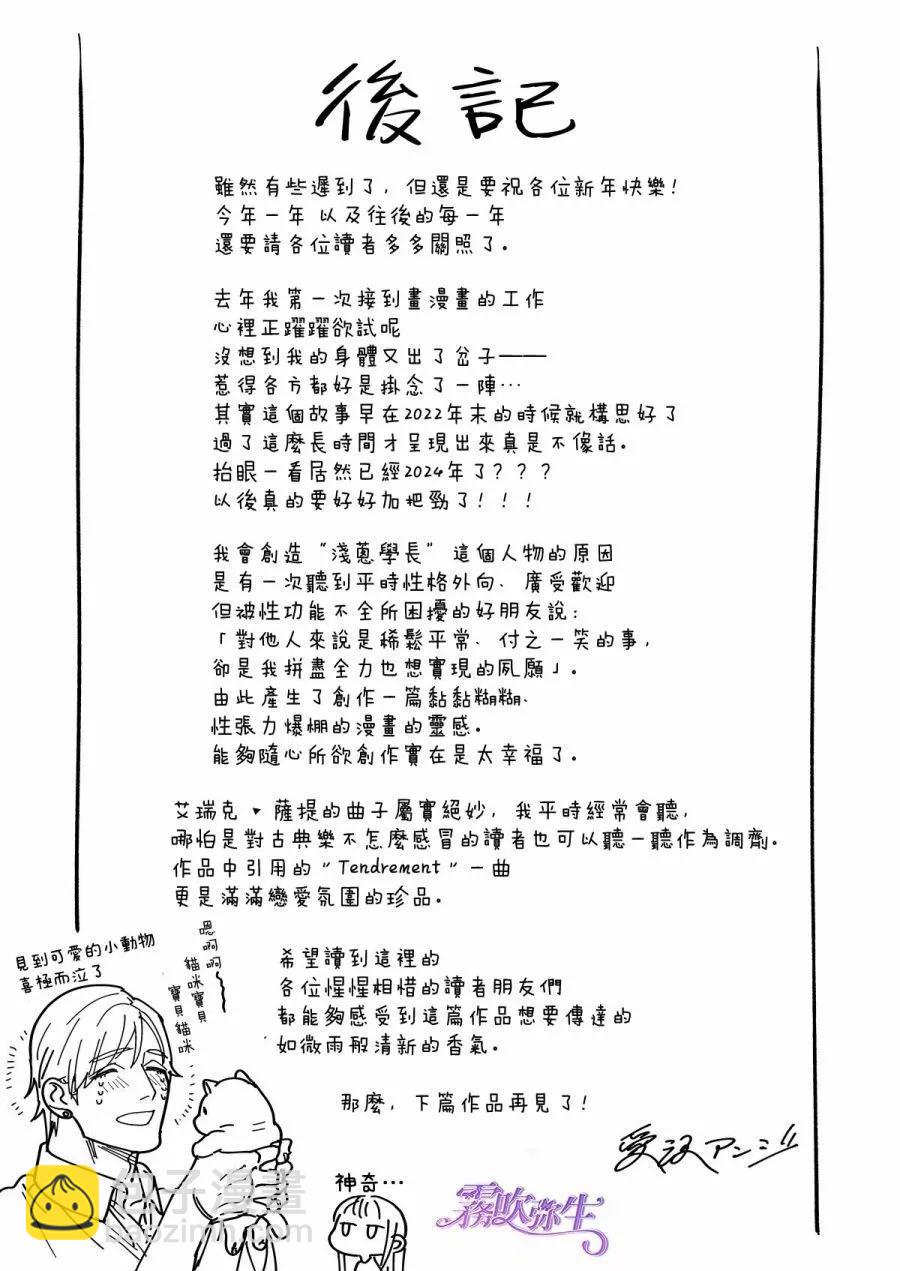 後記
雖然有些遲到了，但還是要祝各位新年快樂！
今年一年 以及往後的每一年
還要請各位讀者多多關照了。
去年我第一次接到畫漫畫的工作
心裡正躍躍欲試呢
沒想到我的身體又出了岔子——
惹得各方都好是掛念了一陣…
其實這個故事早在2022年末的時候就構思好了
過了這麼長時間才呈現出來真是不像話。
抬眼一看居然已經2024年了？？？
以後真的要好好加把勁了！！！
我會創造“淺蔥學長”這個人物的原因
是有一次聽到平時性格外向、廣受歡迎
但被性功能不全所困擾的好朋友說：
「對他人來說是稀鬆平常、付之一笑的事，
卻是我拼盡全力也想實現的夙願」。
由此產生了創作一篇黏黏糊糊、
性張力爆棚的漫畫的靈感。
能夠隨心所欲創作實在是太幸福了。
艾瑞克・薩提的曲子屬實絕妙，我平時經常會聽，
哪怕是對古典樂不怎麼感冒的讀者也可以聽一聽作為調劑。
作品中引用的“Tendrement”一曲
更是滿滿戀愛氛圍的珍品。
希望讀到這裡的
各位惺惺相惜的讀者朋友們
都能夠感受到這篇作品想要傳達的
如微雨般清新的香氣。
那麼，下篇作品再見了！
見到可愛的小動物
喜極而泣了
嗯啊啊～
貓咪寶貝
寶貝貓咪
神奇…
霧吹弥生
包子漫畫
baozimh.com